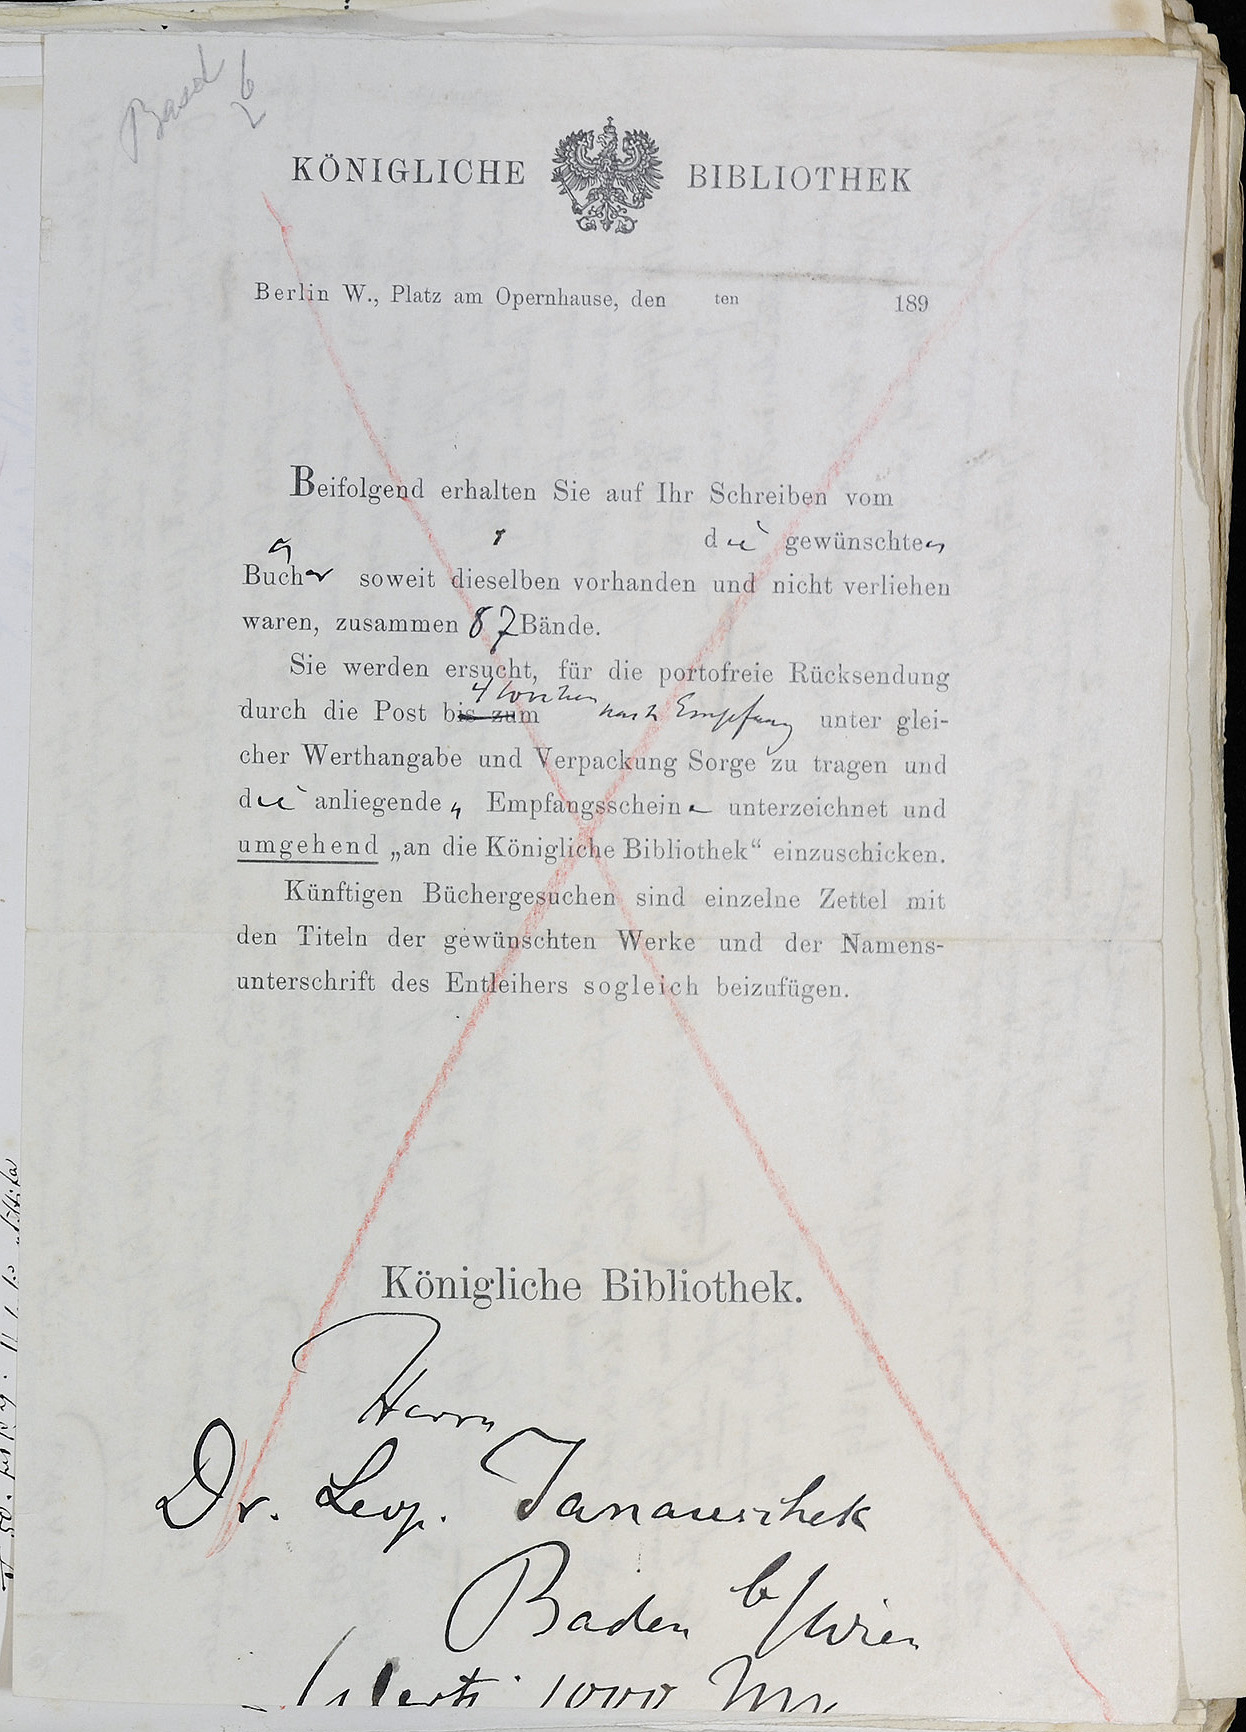 KÖNIGLICHE BIBLIOTHEK
Berlin W., Platz am Opernhause, den ten 189
Beifolgend erhalten Sie auf Ihr Schreiben vom
die gewünschten
Bücher soweit dieselben vorhanden und nicht verliehen
waren, zusammen 87 Bände.
Sie werden ersucht, für die portofreie Rücksendung
4 Wochen
durch die Post bis zum nach Empfang unter glei-
cher Werthangabe und Verpackung Sorge zu tragen und
die anliegenden Empfangsscheine unterzeichnet und
umgehend „an die Königliche Bibliothek“ einzuschicken.
Künftigen Büchergesuchen sind einzelne Zettel mit
den Titeln der gewünschten Werke und der Namens-
unterschrift des Entleihers sogleich beizufügen.
Königliche Bibliothek.
Herrn
Dr. Leop. Janauschek
Baden b/Wien
1000 Mk